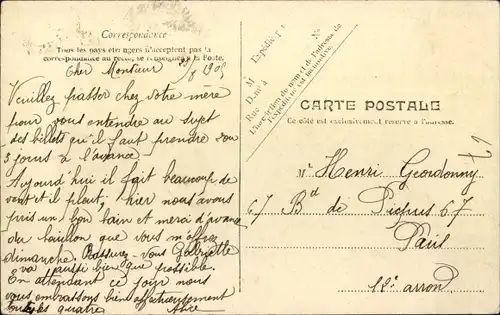 Correspondance
Tous les pays étrangers n'acceptent pas la
correspondance au recto, se renseigner à la Poste.
Cher Monsieur
1905
Veuillez passer chez votre mère
pour vous entendre au sujet
des billets qu'il faut prendre
3 jours à l'avance
Aujourd'hui il fait beaucoup de
vent et il pleut, hier nous avons
pris un bon bain et merci d'avance
du que vous m'offrez
dimanche. Rassurez-vous Gabrielle
va aussi bien que possible.
En attendant ce jour nous
vous embrassons bien affectueusement
tous les quatre
Expédié p
No
M
D.mt à
Rue
L'inscription du nom et de l'adresse de
l'expéditeur est facultative.
CARTE POSTALE
Ce côté est exclusivement réservé à l'adresse.
Mr Henri
67 Bd de Picpus 67
Paris
12e arron